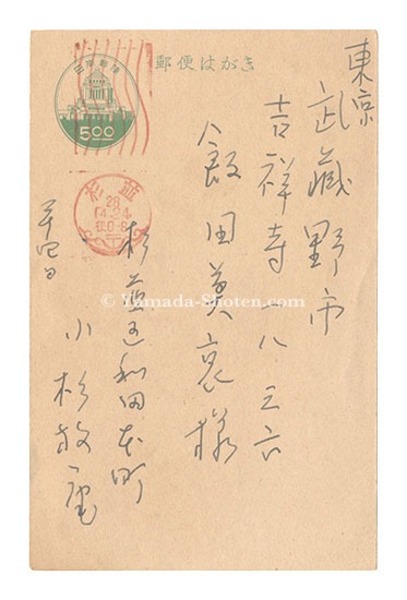 郵便はがき
日本郵便
5.00
東京
武藏野市
吉祥寺一八三六
飯田莫哀様
杉並
28
杉並区和田本町
小杉放庵
廿四日
© Yamada-Shoten.com